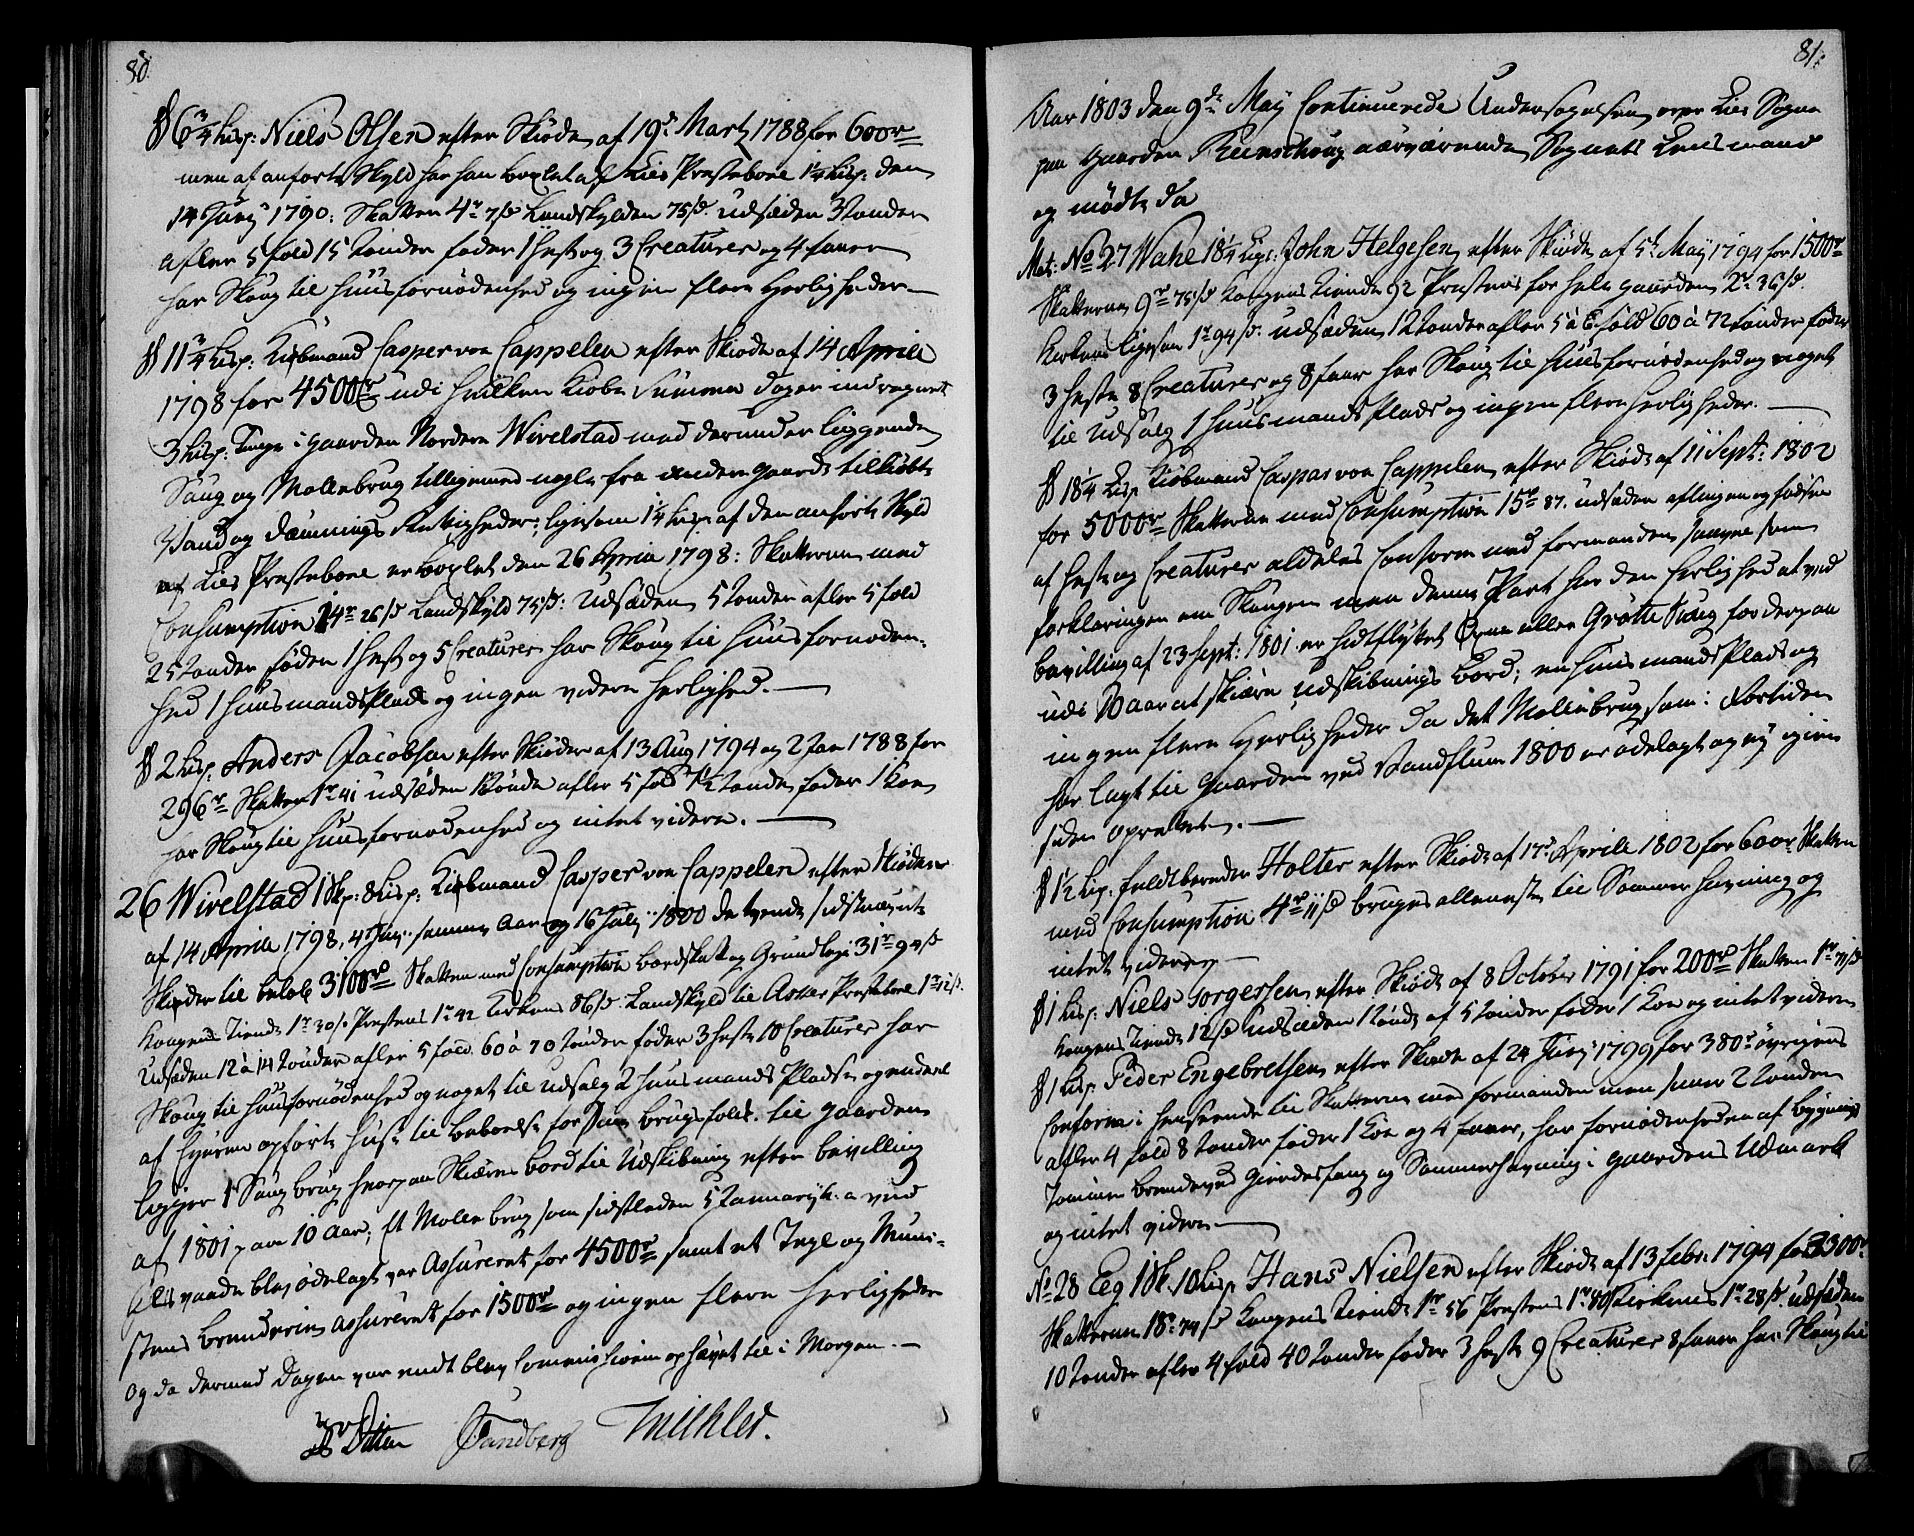 80.
§ 6¾ Lisp: Niels Olsen efter Skiøde af 19de Martz 1788 for 600rd
men af anførte Skyld har han boxlet af Lier Præsteboel 1¼ Lisp: den
14 Junij 1790: Skatten 4rd 7s Landskylden 75s. udsæden 3 tønder
afler 5 fold 15 tønder føder 1 Hest og 3 Creaturer og 4 faarer
har Skoug til Huusfornødenhed og ingen flere Herligheder. —
§ 11¾ Lisp: Kiøbmand Casper von Cappelen efter Skiøde af 14 Aprili
1798 for 4500rd udi hvilken Kiøbe Summa dog er indregnet
3 Lisp: Tunge i gaarden Nordere Wivelstad med derunder liggende
Saug og Mollebrug tilligemed nogle fra andere gaarde tilkiøbte
Vand og Dæmnings Rettigheder; ligesom 1¼ Lisp: af den anførte Skyld
af Lier Præsteboel er boxlet den 26 Aprili 1798: Skatterne med
Consumption 14rd 26s Landskyld 75s: Udsæden 5 tønder afler 5 fold
25 tønder føder 1 Hest og 5 Creaturer har Skoug til Huusfornøden-
hed 1 Huusmandsplads og ingen videre Herlighed. —
§ 2 Lisp: Anders Jacobsen efter Skiøder af 13 Aug 1794 og 2 Jan 1788 for
296rd Skatten 1rd 41 udsæden 1½ tønde afler 5 fold 7½ tønde føder 1 Koe
har Skoug til Huusfornødenhed og intet videre. —
26 Wivelstad 1 Skp: 8 Lisp: Kiøbmand Casper von Cappelen efter Skiøder
af 14 Aprili 1798, 4 Junij samme Aar og 16 Julij 1800 de tvende sidstnævnte
Skiøder til beløb 3100rd Skatten med Consumption bordskat og Grundleje 31rd 94s
Kongens Tiende 1rd 30s Præstens 1rd 42 Kirkens 86s. Landskyld til Asker Præsteboel 1rd 12s.
Udsæden 12 à 14 tønder afler 5 fold 60 à 70 tønder føder 3 Heste 10 Creaturer har
Skoug til Huusfornødenhed og noget til udsalg 2 Huusmands Pladse og endeel
af Eyeren opførte Huse til beboelse for Saug brugs folk. til gaarden
ligger 1 Saug brug hvorpaa Skiæres bord til Udskibning efter bevilling
af 1801 paa 10 Aar; Et Molle brug som sidstleden 5 Januarij h: a ved
Ildsvaade blev ødelagt var Assureret for 4500rd samt et Tegl og Muur-
steens brænderie assureret for 1500rd og ingen flere Herligheder
Og da dermed Dagen var endt blev Commissionen ophævet til i Morgen. —
v Ditten Sandberg Mechlet.
81.
Aar 1803 den 9de Maÿ Continuerede Undersøgelsen over Lier Sogn
paa gaarden Reenschoug nærværende Sognets Lensmand
og mødte da
Mat: No 27 Wahe 18¼ Lisp: John Helgesen efter Skiøde af 5te Maÿ 1794 for 1500rd
Skatterne 9rd 75s Kongens Tiende 92 Præstens for hele gaarden 2rd 36s.
Kirkens ligesom 1rd 94s. udsæden 12 tønder afler 5 à 6 fold 60 à 72 tønder føder
3 Heste 8 Creaturer og 8 faar har Skoug til Huusfornødenhed og noget
til Udsalg 1 Huusmands Plads og ingen flere Herligheder. —
§ 18¼ Lisp Kiøbmand Caspar von Cappelen efter Skiøde af 11 Sept: 1802
for 5000rd Skatterne med Consumption 15rd 87. udsæden aflingen og fødsen
af Heste og Creaturer aldeles Conform med formanden saavelsom
forklaringen om Skougen men denne Part har den Herlighed at ved
bevilling af 23 Sept: 1801 er hidflyttet Øvre eller Grøtte Saug for derpaa
udi 10 aar at skiære udskibnings bord; en Huusmands Plads og
ingen flere Herligheder da det Mollebrug som i Fortiden
har lagt til gaarden ved Vandflum 1800 er ødelagt og ej igien
siden oprettet. —
§ 1½ Lisp. Feldbereder Holter efter Skiøde af 17de Aprili 1802 for 600rd Skatten
med Consumption 4rd 11s bruges alleneste til Sommer havning og
intet videre —
§ 1 Lisp: Niels Torgersen efter Skiøde af 8 October 1791 for 200rd Skatten 1rd 71s
Kongens Tiende 12s Udsæden 1 tønde af 5 tønder føder 1 Koe og intet videre
§ 1 Lisp Peder Engebretsen efter Skiøde af 24 Junij 1799 for 380rd øvrigens
Conform i henseende til Skatterne med formanden men saaer 2 tønder
afler 4 fold 8 tønder føder 1 Koe og 4 faarer, har fornødenheden af bygnings
Tømmer brændeved Gierdesfang og Sommerhavning i gaardens Udmark
og intet videre —
No 28 Eeg 1 Sk. 10 Lisp Hans Nielsen efter Skiøde af 13 Febr: 1794 for 3300rd
Skatterne 18rd 74s Kongens Tiende 1rd 56 Præstens 1rd 80 Kirkens 1rd 28s. udsæden
10 tønder afler 4 fold 40 tønder føder 3 Heste 9 Creaturer 8 faarer har Skoug til